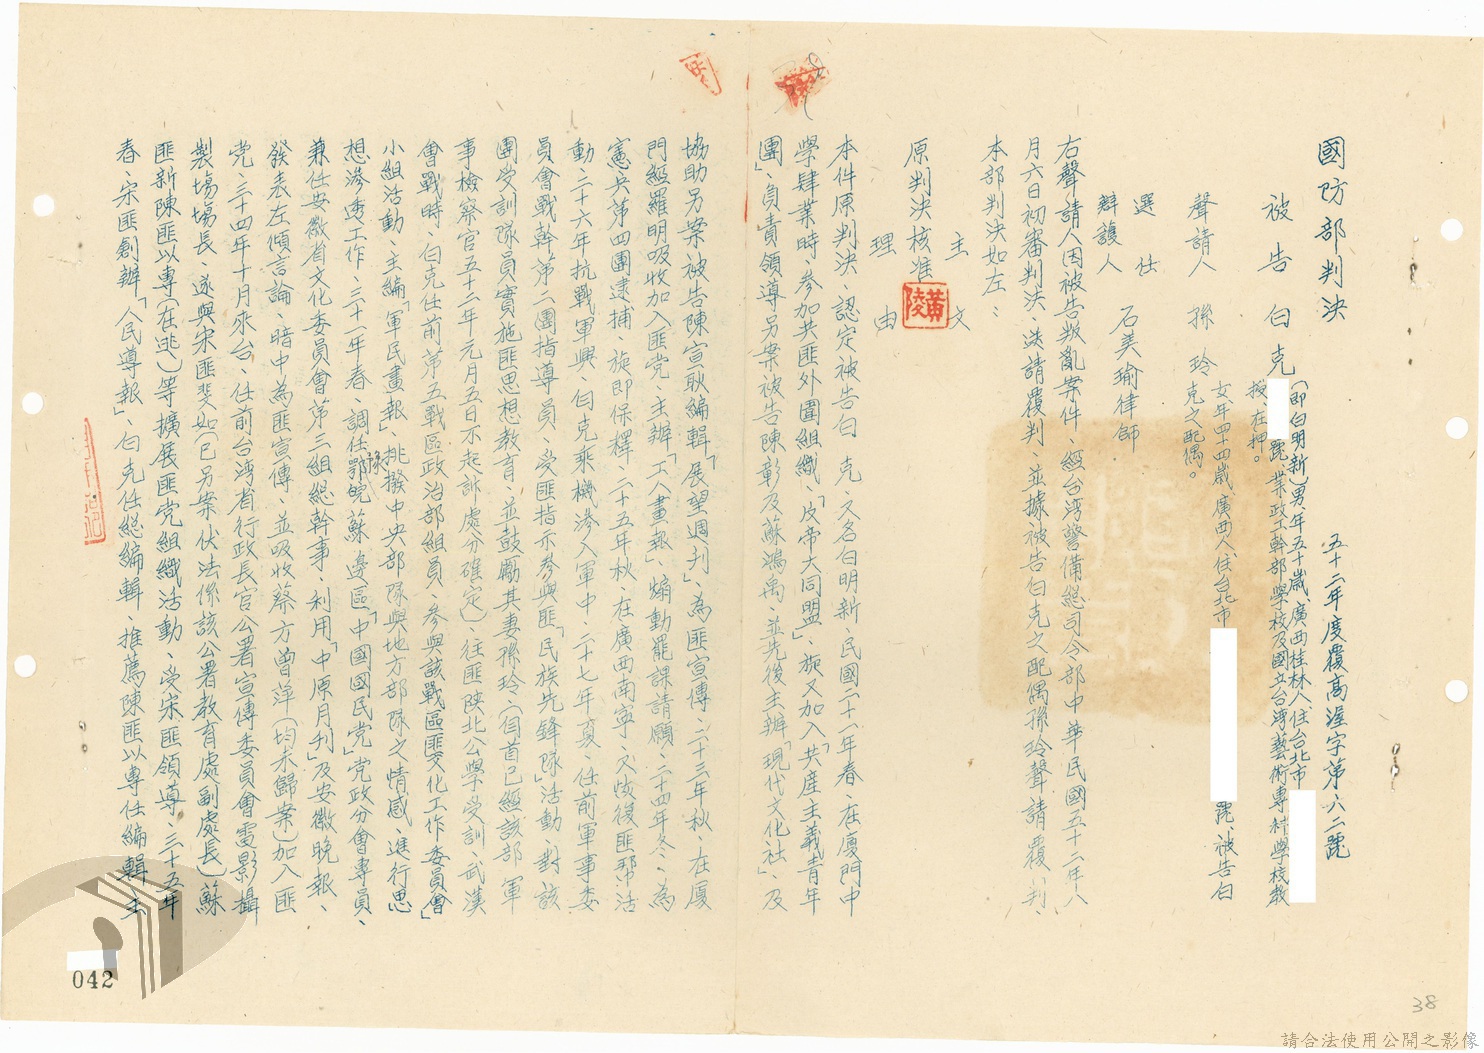 國防部判決
五十二年度覆高渥字第六二號
被告 白克(即白明新)男、年五十歲、廣西桂林人、住台北市
號、業政工幹部學校及國立台灣藝術專科學校教
授、在押。
聲請人 孫玲 女年四十四歲、廣西人、住台北市 號、被告白
克之配偶。
選任
辯護人 石美瑜律師
右聲請人因被告叛亂案件、經台湾警備總司令部中華民國五十二年八
月六日初審判決、送請覆判、並據被告白克之配偶孫玲聲請覆判、
本部判決如左:
主文
原判決核准
黃陵
理由
本件原判決、認定被告白克、又名白明新、民國二十一年春、在廈門中
學肄業時、參加共匪外圍組織、「反帝大同盟」、旋又加入「共產主義青年
團」、負責領導另案被告陳彰及蘇鴻禹、並先後主辦「現代文化社」、及
協助另案被告陳宣耿編輯「展望週刊」、為匪宣傳、二十三年秋、在厦
門經羅明吸收加入匪党、主辦「工人畫報」、煽動罷課請願、二十四年冬、為
憲兵第四團逮捕、旋即保釋、二十五年秋、在廣西南寧、又恢復匪帮活
動、二十六年抗戰軍興、白克乘機滲入軍中、二十七年夏、任前軍事委
員會戰幹第二團指導員、受匪指示參與匪「民族先鋒隊」活動、對該
團受訓隊員實施匪思想教育、並鼓勵其妻孫玲、(自首已經該部軍
事檢察官五十二年元月五日不起訴處分確定)往匪陝北公學受訓、武漢
會戰時、白克任前第五戰區政治部組員、參與該戰區匪文化工作委員會」
小組活動、主編「軍民畫報」、挑撥中央部隊與地方部隊之情感、進行思
想滲透工作、三十一年春、調任鄂豫皖蘇邊區「中國國民党」党政分會專員、
兼任安徽省文化委員會第三組總幹事、利用「中原月刊」及安徽晚報、
發表左傾言論、暗中為匪宣傳、並吸收蔡方曾萍(均未歸案)加入匪
党、三十四年十月來台、任前台湾省行政長官公署宣傳委員會電影攝
製場場長、遂與宋匪斐如(已另案伏法係該公署教育處副處長)蘇
匪新陳匪以專(在逃)等擴展匪党組織活動、受宋匪領導、三十五年
春、宋匪創辦「人民導報」、白克任總編輯、推薦陳匪以專任編輯主
042
38
請合法使用公開之影像